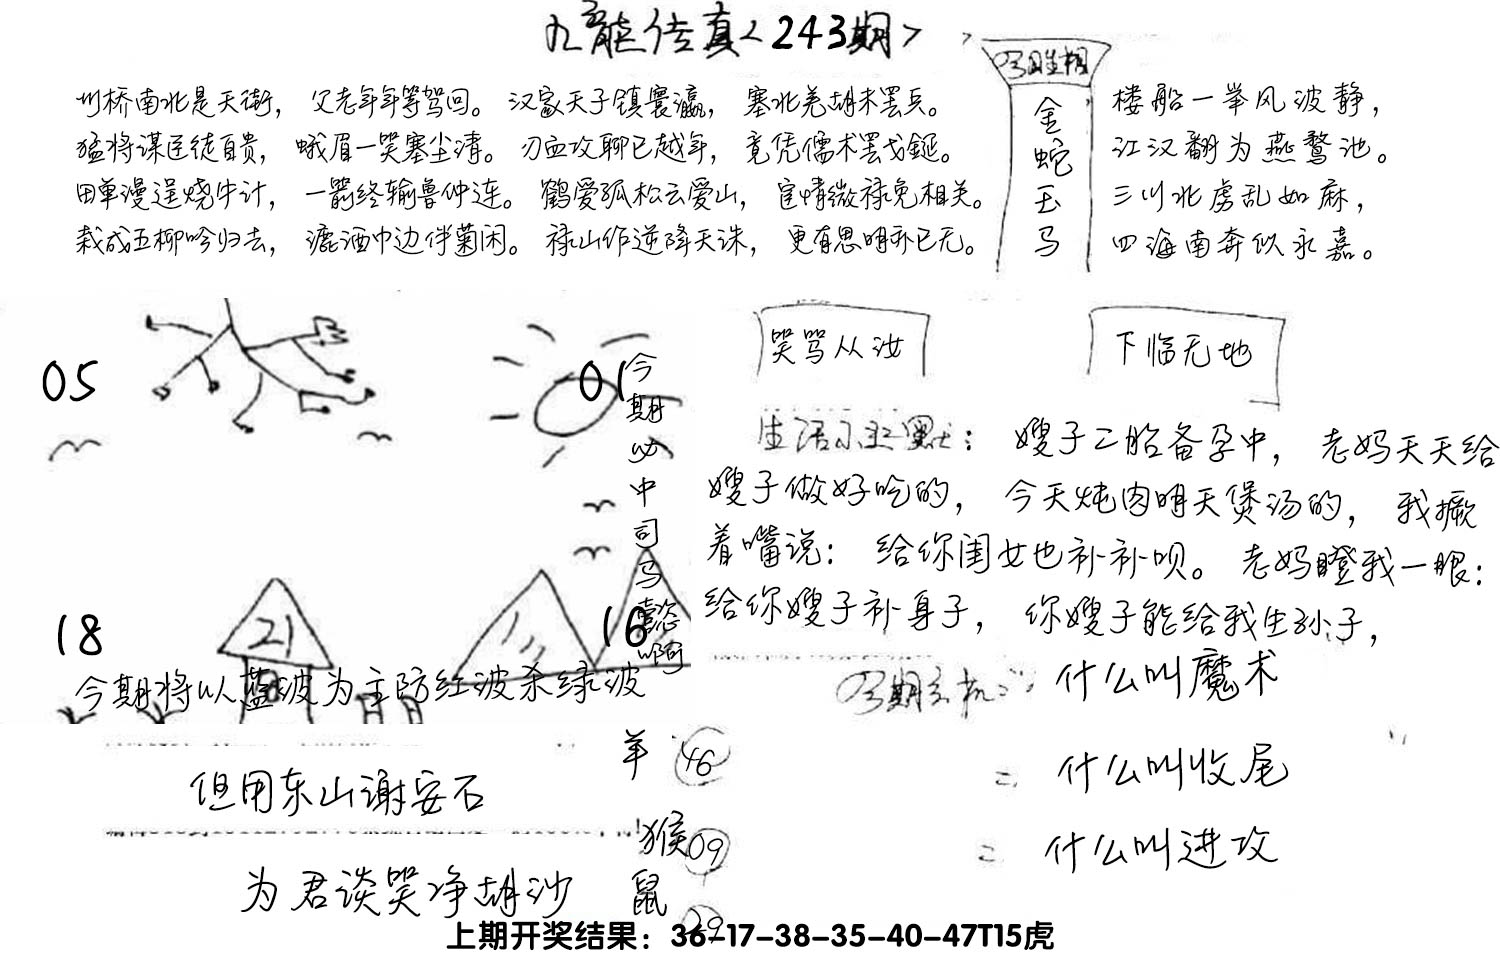 九龙传真<243期>
州桥南北是天街, 父老年年等驾回。 汉家天子镇寰瀛, 塞北羌胡未罢兵。
猛将谋臣徒自贵, 蛾眉一笑塞尘清。 刃血攻聊已越年, 竟凭儒术罢戈鋋。
田单漫逞烧牛计, 一箭终输鲁仲连。 鹤爱孤松云爱山, 宦情微禄免相关。
栽成五柳吟归去, 漉酒中边伴菊闲。 禄山作逆降天诛, 更有思明亦已无。
金蛇玉马
楼船一举风波静,
江汉翻为燕鹜池。
三川北虏乱如麻,
四海南奔似永嘉。
05
01
18
21
16
今期必中司马懿啊
今期将以蓝波为主防红波杀绿波
哭骂从汝
下临无地
生活小幽默: 嫂子二胎备孕中, 老妈天天给
嫂子做好吃的, 今天炖肉明天煲汤的, 我撅
着嘴说: 给你闺女也补补呗。 老妈瞪我一眼:
给你嫂子补身子, 你嫂子能给我生孙子,
什么叫魔术
二 什么叫收尾
二 什么叫进攻
但用东山谢安石
为君谈笑净胡沙
羊 46
猴 09
鼠 29
上期开奖结果：36-17-38-35-40-47T15虎